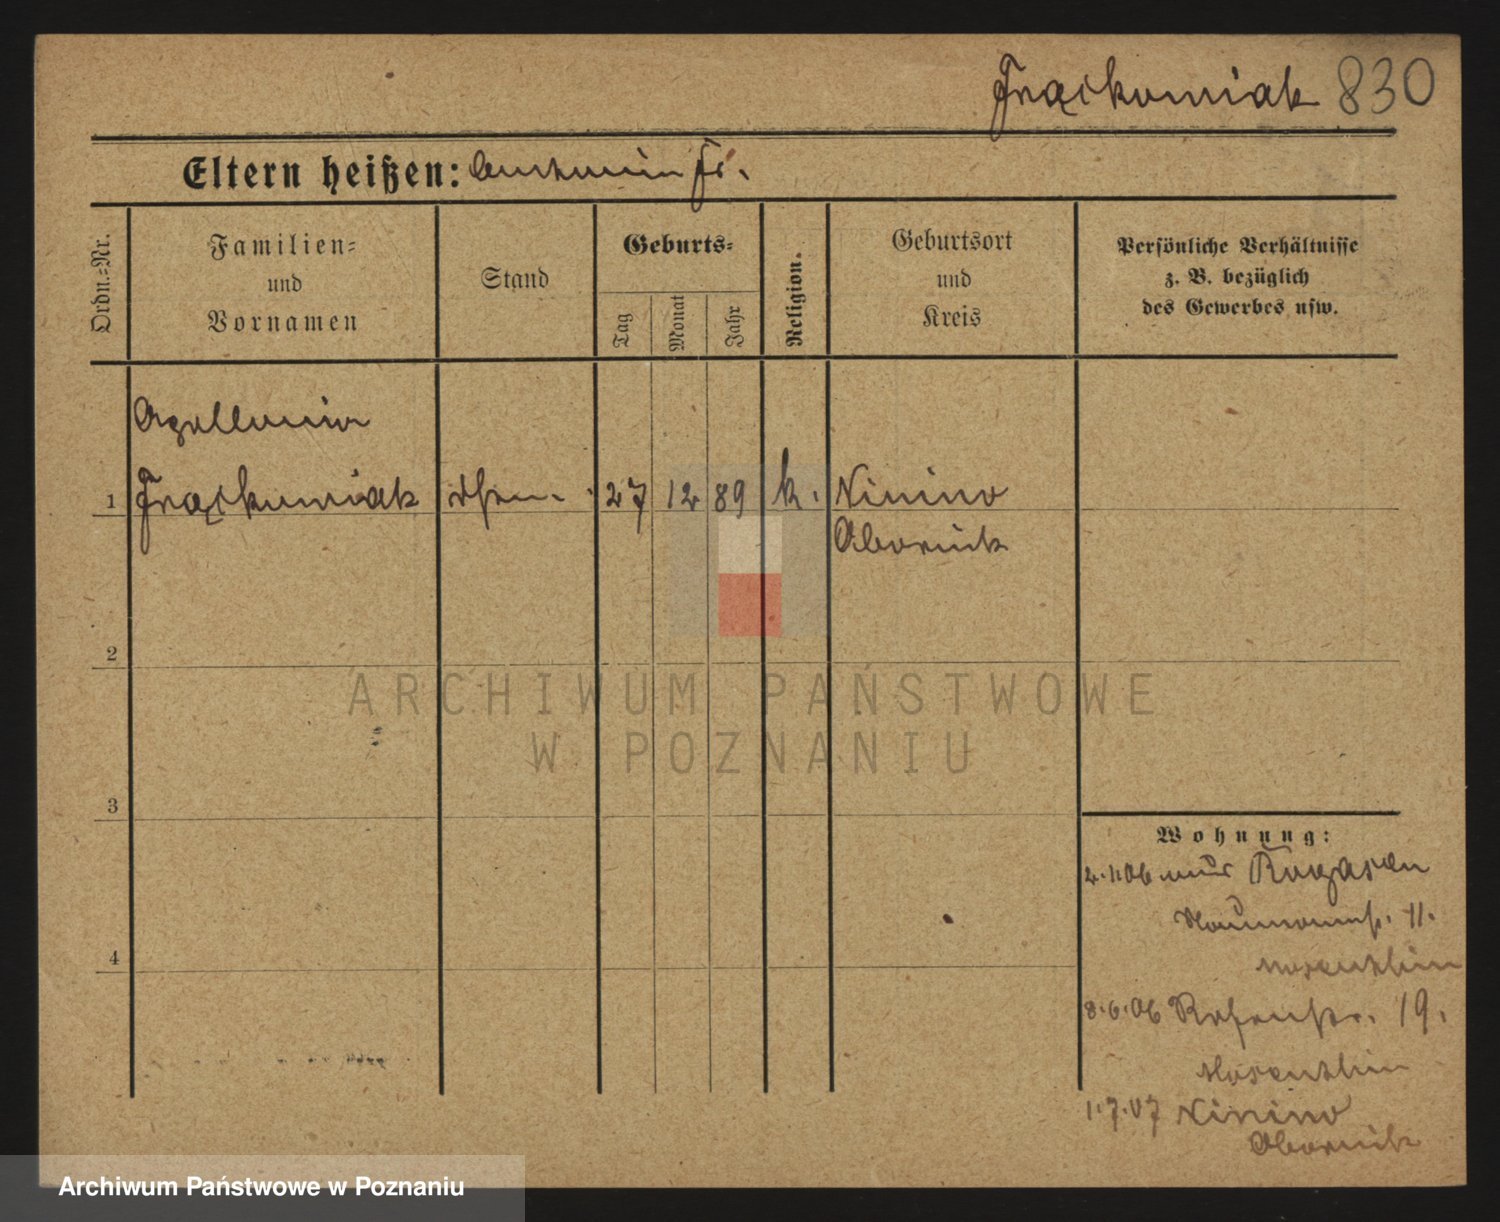 Frąckowiak 830
Eltern heißen:
Ordn.=Nr.
Familien=
und
Vornamen
Stand
Geburts=
Tag
Monat
Jahr
Religion.
Geburtsort
und
Kreis
Persönliche Verhältnisse
z. B. bezüglich
des Gewerbes usw.
Apollonia
1 Frąckowiak 27 12 89 k. Ninino
Obornik
2
ARCHIWUM PAŃSTWOWE
W POZNANIU
3
Wohnung:
2.1.06 aus Rogasen
Naumannstr. 11.
4
8.6.06 Rosenstr. 19.
1.7.07 Ninino
Obornik
Archiwum Państwowe w Poznaniu